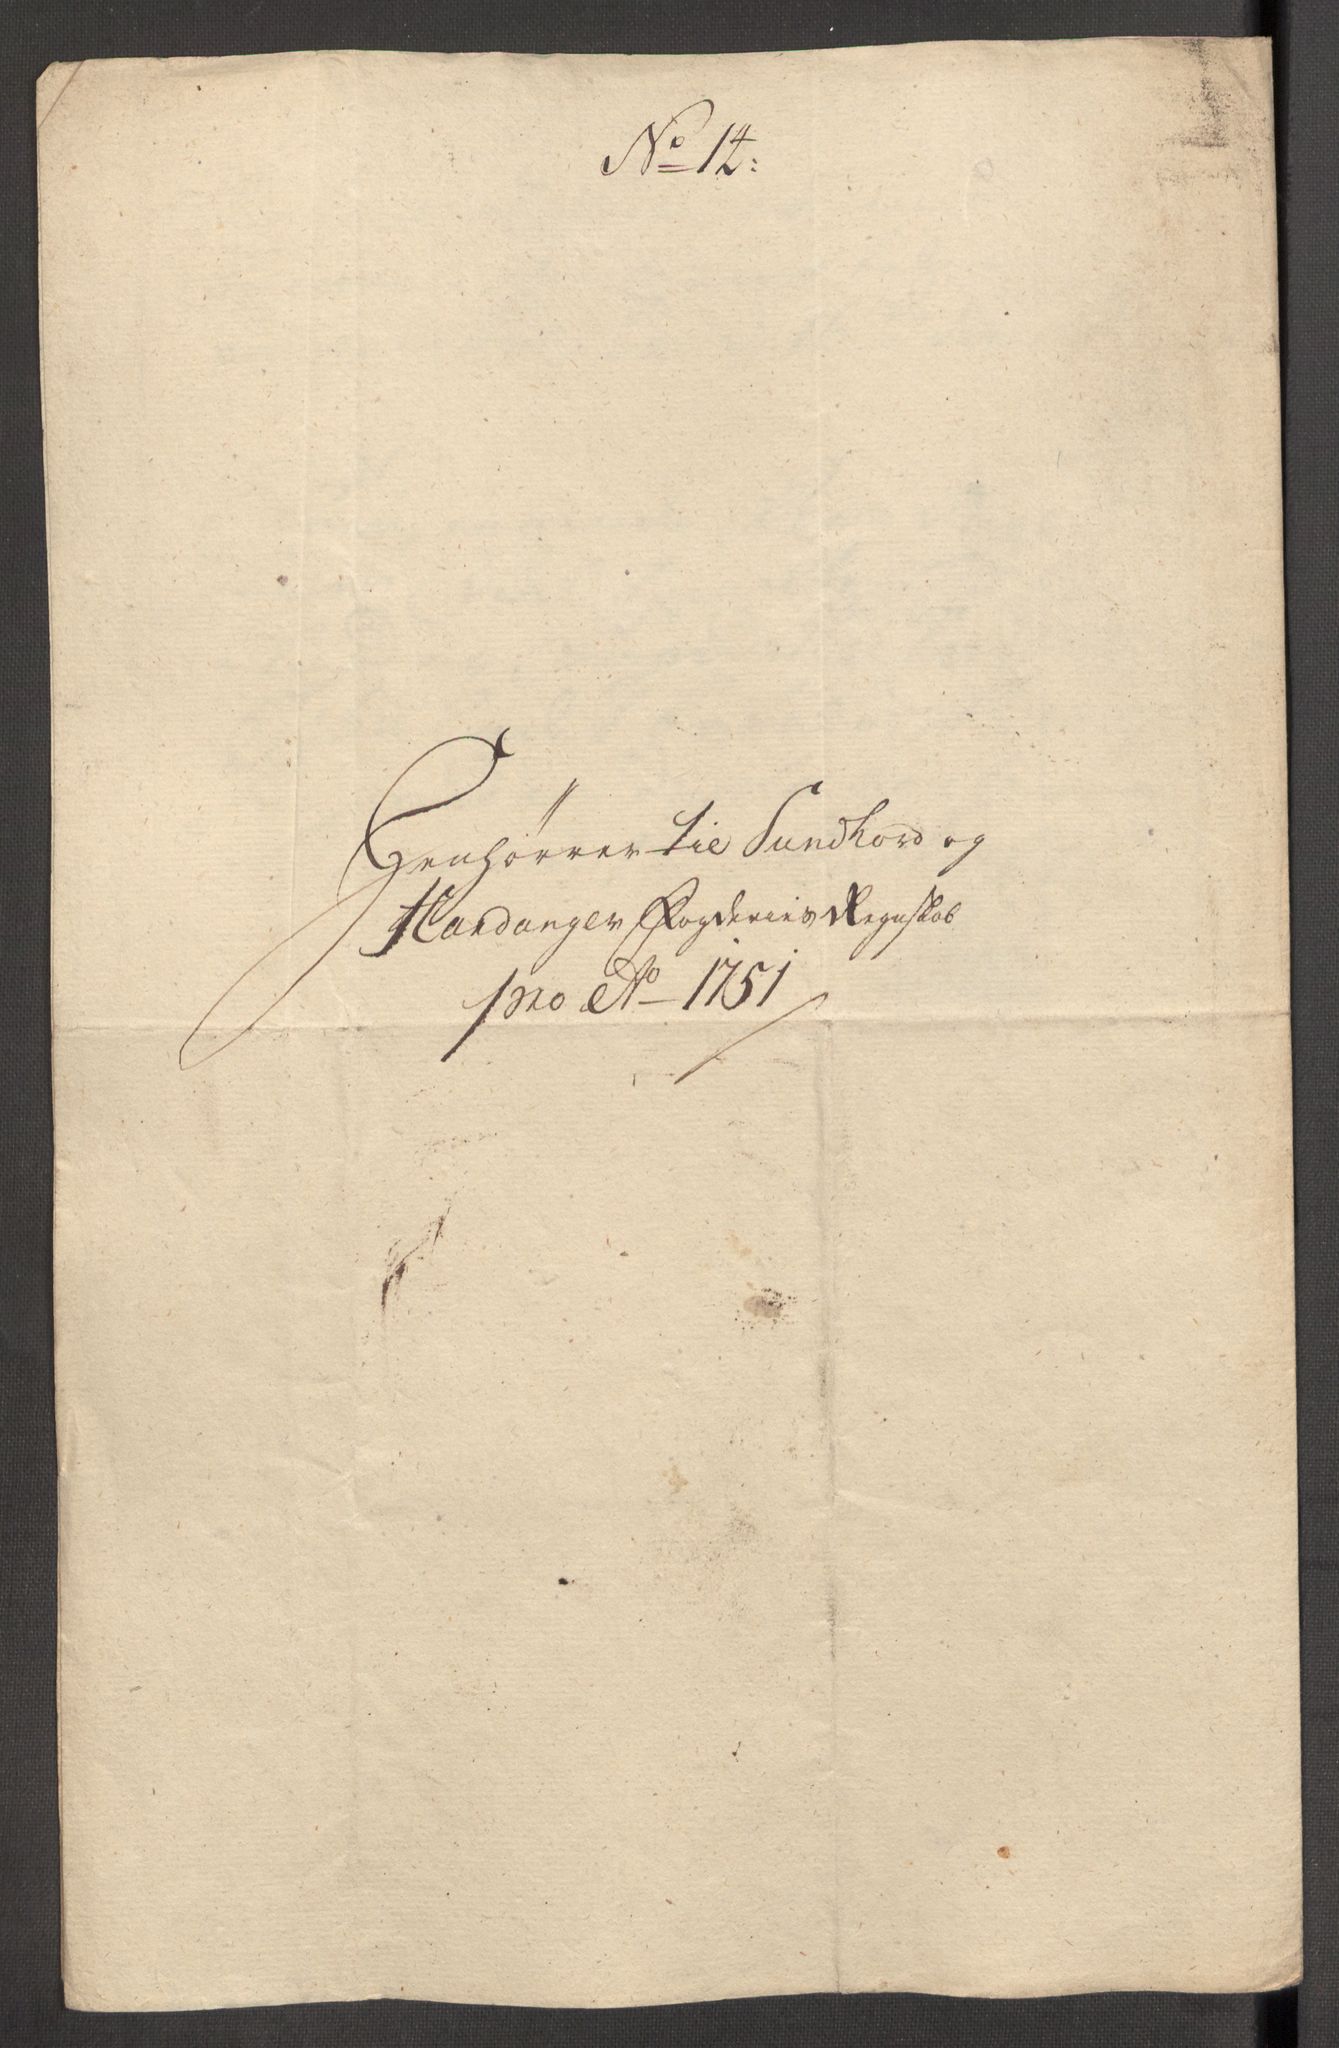 No 14:
Henhørrer til Sundhord og
Hardanger Fogderies Regnskab
pro Ao 1751